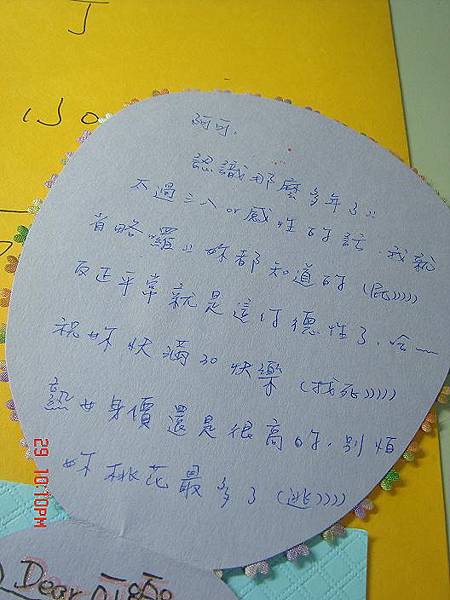 阿可.
認識那麼多年了..
不過三八or感性的話.我就
省略囉..妳都知道的(屁))))
反正平常就是這付德性了.哈~~
祝妳快滿30快樂(找死)))))
熟女身價還是很高的.別煩
妳桃花最多了(逃))))
Dear
29 10:10PM